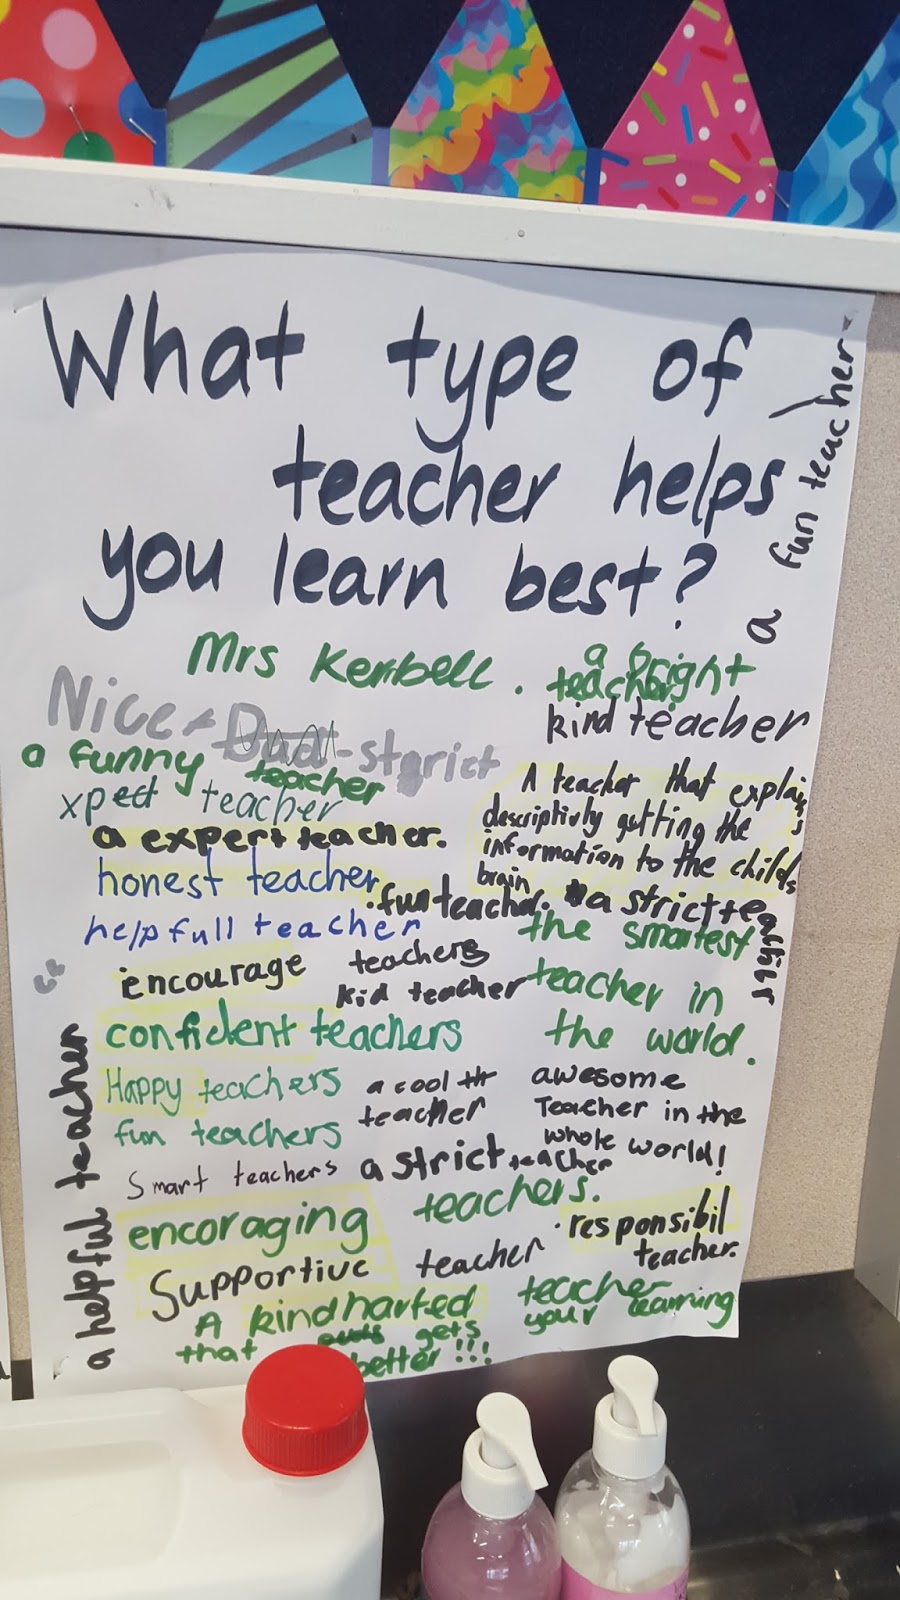 What type of
teacher helps
you learn best?
a fun teacher
Mrs Kerrbell.
a bright
teacher
kind teacher
Nice
strict
a funny teacher
xpect teacher
a expert teacher.
A teacher that explains
descriptivly getting the
information to the childs
brain
honest teacher
.fun teacher.
a strict teacher
helpfull teacher
the smartest
teacher in
the world.
encourage teachers
kid teacher
confident teachers
Happy teachers
a cool
teacher
awesome
Teacher in the
whole world!
fun teachers
Smart teachers
a strict teacher
encoraging teachers.
.responsibil
teacher.
Supportive teacher
A kindharted teacher
that gets your learning
better!!!
a helpful teacher